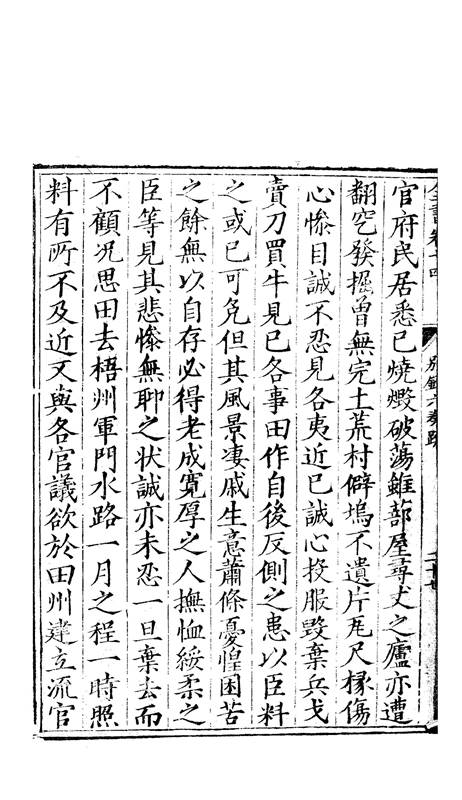 全書卷十四
別錄六奏疏
官府民居悉已燒燬破蕩雖蔀屋尋丈之廬亦遭
翻穵發掘曾無完土荒村僻塢不遺片瓦尺椽傷
心慘目誠不忍見各夷近已誠心投服毀棄兵戈
賣刀買牛見已各事田作自後反側之患以臣料
之或已可免但其風景凄戚生意蕭條憂惶困苦
之餘無以自存必得老成寬厚之人撫恤綏柔之
臣等見其悲慘無聊之狀誠亦未忍一旦棄去而
不顧况思田去梧州軍門水路一月之程一時照
料有所不及近又與各官議欲於田州建立流官